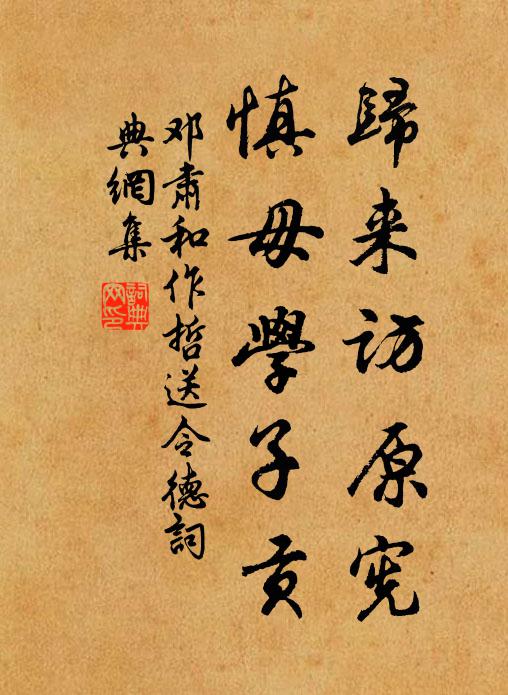 歸来访原宪
慎毋學子贡
邓肃和作哲送令德詞
典網集
詞典網印